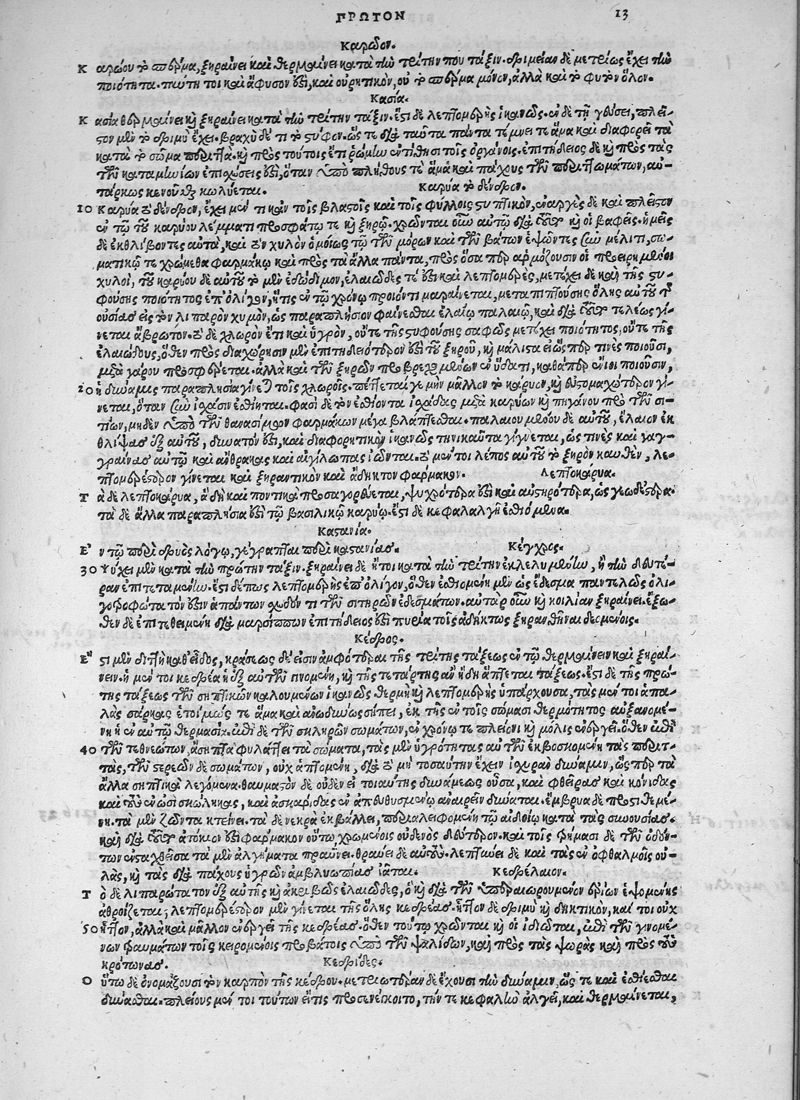 ΠΡΩΤΟΝ 13
Καρώου.
Καρώου τὸ σπέρμα, ξηραίνει καὶ θερμαίνει κατὰ τὴν τρίτην που τάξιν. δριμεῖαν δὲ μετρίως ἔχει τὴν
ποιότητα. ταύτῃ τοι καὶ ἄφυσον ἐστὶ, καὶ οὐρητικὸν, οὐ τὸ σπέρμα μόνον, ἀλλὰ καὶ τὸ φυτὸν ὅλον.
Κασία.
Κασία θερμαίνει κὴ ξηραίνει κατὰ τὴν τρίτην τάξιν. ἔστι δὲ λεπτομερὴς ἱκανῶς. ἐν δὲ τῇ γεύσει, πλεῖ-
στον μὲν τὸ δριμὺ ἔχει. βραχὺ δέ τι τὸ στῦφον. ὥς τε διὰ ταῦτα πάντα τέμνει τε ἅμα καὶ διαφορεῖ τὰ
κατὰ τὸ σῶμα περιττά. κὴ πρὸς τούτοις ἔτι ῥώμην ἐντίθησι τοῖς ὀργάνοις. ἐπιτήδειος δὲ κὴ πρὸς τὰς
τῶν καταμηνίων ἐπισχέσεις ἐστὶ, ὅταν ὑπὸ πλήθους τε ἅμα καὶ πάχους τῶν περιττωμάτων, αὐ-
τάρκως κενοῦσθαι κωλύεται. Καρύα τὸ δένδρον.
10 Καρύα τὸ δένδρον, ἔχει μέν τι κἀν τοῖς βλαστοῖς καὶ τοῖς φύλλοις στυπτικὸν, ἐναργὲς δὲ καὶ πλεῖστον
ἐν τῷ τοῦ καρύου λέμματι προσφάτῳ τε κὴ ξηρῷ. χρῶνται οὖν αὐτῷ διὰ τοῦτο κὴ οἱ βαφεῖς. ἡμεῖς
δὲ ἐκθλίβοντες αὐτὰ, καὶ τὸν χυλὸν ὁμοίως τῷ τῶν μόρων καὶ τῶν βάτων ἕψοντες σὺν μέλιτι, στο-
ματικῷ τε χρώμεθα φαρμάκῳ καὶ πρὸς τὰ ἄλλα πάντα, πρὸς ὅσα περ ἁρμόζουσιν οἱ προειρημένοι
χυλοὶ, τοῦ καρύου δὲ αὐτοῦ τὸ μὲν ἐδώδιμον, ἐλαιῶδές τέ ἐστι καὶ λεπτομερὲς, μετέχει δὲ καὶ τῆς στυ-
φούσης ποιότητος ἐπ᾽ ὀλίγον, ἥτις ἐν τῷ χρόνῳ προϊόντι μαραίνεται, μεταπιπτούσης ὅλης αὐτοῦ τῆς
οὐσίας εἰς τὸν λιπαρὸν χυμὸν, ὡς παραπλήσιον φαίνεσθαι ἐλαίῳ παλαιῷ, καὶ διὰ τοῦτο τελέως γί-
νεται ἄβρωτον. τὸ δὲ χλωρὸν ἔτι καὶ ὑγρὸν, οὔτε τῆς στυφούσης σαφῶς μετέχει ποιότητος, οὔτε τῆς
ἐλαιώδους, ὅθεν πρὸς διαχώρησιν μὲν ἐπιτηδειότερον ἐστὶ τοῦ ξηροῦ, κὴ μάλιστα εἰ ὥσπερ τινὲς ποιοῦσι,
μετὰ γάρου προσφέρεται. ἀλλὰ καὶ τῶν ξηρῶν προβρεχομένων ἐν ὕδατι, καθάπερ ἔνιοι ποιοῦσιν,
20 ἡ δύναμις παραπλησία γίνεται τοῖς χλωροῖς. πέττεται γε μὴν μᾶλλον τὸ κάρυον, κὴ εὐστομαχότερον γί-
νεται, ὅταν σὺν ἰσχάσιν ἐσθίηται. φασὶ δὲ τὸν ἐσθίοντα ἰσχάδας μετὰ καρύων κὴ πηγάνου πρὸ τῶν σι-
τίων, μηδὲν ὑπὸ τῶν θανασίμων φαρμάκων μέγα βλάπτεσθαι. παλαιουμένου δὲ αὐτοῦ, ἔλαιον ἐκ
θλίψας ἐξ αὐτοῦ, δυνατόν ἐστι, καὶ διαφορητικὸν ἱκανῶς τηνικαῦτα γίγνεται, ὥς τινὲς καὶ γαγ-
γραίνας αὐτῷ καὶ ἄνθρακας καὶ αἰγίλωπας ἰῶνται. τὸ μέν τοι λέπος αὐτοῦ τὸ ξηρὸν καυθὲν, λε-
πτομερέστερον γίνεται καὶ ξηραντικὸν καὶ ἄδηκτον φάρμακον. Λεπτοκάρυα.
Τὰ δὲ λεπτοκάρυα, ἃ δὴ καὶ ποντικὰ προσαγορεύεται, ψυχρότερα ἐστὶ καὶ αὐστηρότερα, ὡς γεωδέστερα.
τὰ δὲ ἄλλα παραπλήσια ἐστὶ τῷ βασιλικῷ καρύῳ. ἔστι δὲ κεφαλαλγῆ ἐσθιόμενα.
Καστανία.
Ἐν τῷ περὶ δρυὸς λόγῳ, γέγραπται περὶ καστανίας. Κέγχρος.
30 Ψύχει μὲν κατὰ τὴν πρώτην τάξιν. ξηραίνει δὲ ἤτοι κατὰ τὴν τρίτην ἐκλελυμένην, ἢ τὴν δευτέ-
ραν ἐπιτεταμένην. ἔστι δέ πως λεπτομερὴς ἐπ᾽ ὀλίγον, ὅθεν ἐσθιομένη μὲν ὡς ἔδεσμα παντελῶς ὀλι-
γοτροφώτατον ἐστιν ἁπάντων σχεδόν τι τῶν σιτηρῶν ἐδεσμάτων. αὐτὰρ οὖν κὴ κοιλίαν ξηραίνει. ἔξω-
θεν δὲ ἐπιτιθεμένη διὰ μαρσίππων ἐπιτήδειος ἐστὶ πυρία τοῖς ἀδήκτως ξηρανθῆναι δεομένοις.
Κέδρος.
Ἔστι μὲν διττὴ κατ᾽ εἶδος, κράσεως δ᾽ εἰσὶν ἀμφότεραι τῆς τρίτης τάξεως ἐν τῷ θερμαίνειν καὶ ξηραί-
νειν. ἡ μέν τοι κεδρέα ἡ ἐξ αὐτῶν γινομένη, κὴ τῆς τετάρτης ἂν ἤδη ἅπτεται τάξεως. ἔστι δὲ τῆς πρώ-
της τάξεως τῶν σηπτικῶν καλουμένων ἱκανῶς θερμὴ κὴ λεπτομερὴς ὑπάρχουσα, τὰς μέν τοι ἁπα-
λὰς σάρκας ἑτοίμως τε ἅμα καὶ ἀνωδύνως σήπει, ἐκ τῆς ἐν τοῖς σώμασι θερμότητος αὐξανομέ-
νη ἡ ἐν αὐτῷ θερμασία. ἐπὶ δὲ τῶν σκληρῶν σωμάτων, ἐν χρόνῳ τε πλείονι κὴ μόλις ἐνεργεῖ. ὅθεν ἐπὶ
40 τῶν τεθνεώτων, ἄσηπτα φυλάττει τὰ σώματα, τὰς μὲν ὑγρότητας αὐτῶν ἐκβοσκομένη τὰς περιτ-
τὰς, τῶν στερεῶν δὲ σωμάτων, οὐχ ἁπτομένη, διὰ τὸ μὴ τοσαύτην ἔχειν ἰσχυρὰν δύναμιν, ὥσπερ τὰ
ἄλλα σηπτικὰ λεγόμενα. θαυμαστὸν δὲ οὐδὲν εἰ τοιαύτης δυνάμεως οὖσα, καὶ φθεῖρας καὶ κονίδας
καὶ τοὺς ἐν ὠσὶ σκώληκας, καὶ ἀσκαρίδας ἐν ἀπευθυσμένῳ ἀναιρεῖν δύναται. ἔμβρυα δὲ προστιθεμέ-
νη. τὰ μὲν ζῶντα κτείνει. τὰ δὲ νεκρὰ ἐκβάλλει, περιαλειφομένη τῷ αἰδοίῳ κατὰ τὰς συνουσίας.
καὶ διὰ τοῦτο ἀτόκιον ἐστὶ φάρμακον οὕτω χρωμένοις οὐδενὸς δεύτερον. καὶ τοῖς τρήμασι δὲ τῶν ὀδόν-
των ἐνσταχθεῖσα τὰ μὲν ἀλγήματα πραΰνει. θραύει δὲ αὐτούς. λεπτύνει δὲ καὶ τὰς ἐν ὀφθαλμοῖς οὐ-
λὰς, κὴ τὰς διὰ πάχους ὑγρῶν ἀμβλυωπίας ἰᾶται. Κεδρέλαιον.
Τὸ δὲ λιπαρώτατον ἐξ αὐτῆς κὴ ἀκριβῶς ἐλαιῶδες, ὃ κὴ διὰ τῶν ὑπεραιωρουμένων ἐρίων ἑψομένης
ἀθροίζεται, λεπτομερέστερον μὲν γίνεται τῆς ὅλης κεδρέας. ἧττον δὲ δριμὺ κὴ δηκτικὸν, καί τοι οὐχ
50 ἧττον, ἀλλὰ καὶ μᾶλλον ἐνεργεῖ τῆς κεδρέας. ὅθεν τούτῳ χρῶνται κὴ οἱ ἰδιῶται, ἐπὶ τῶν γινομέ-
νων τραυμάτων τοῖς κειρομένοις προβάτοις ὑπὸ τῶν ψαλίδων, καὶ πρὸς τὰς ψώρας καὶ πρὸς τοὺς
κρότωνας. Κεδρίδες.
Οὕτω δὲ ὀνομάζουσι τὸν καρπὸν τῆς κέδρου. μετριωτέραν δὲ ἔχουσι τὴν δύναμιν, ὥς τε καὶ ἐσθίεσθαι
δύνασθαι. πλείους μέν τοι τούτων εἴ τις προσενέγκοιτο, τήν τε κεφαλὴν ἀλγεῖ, καὶ θερμαίνεται,